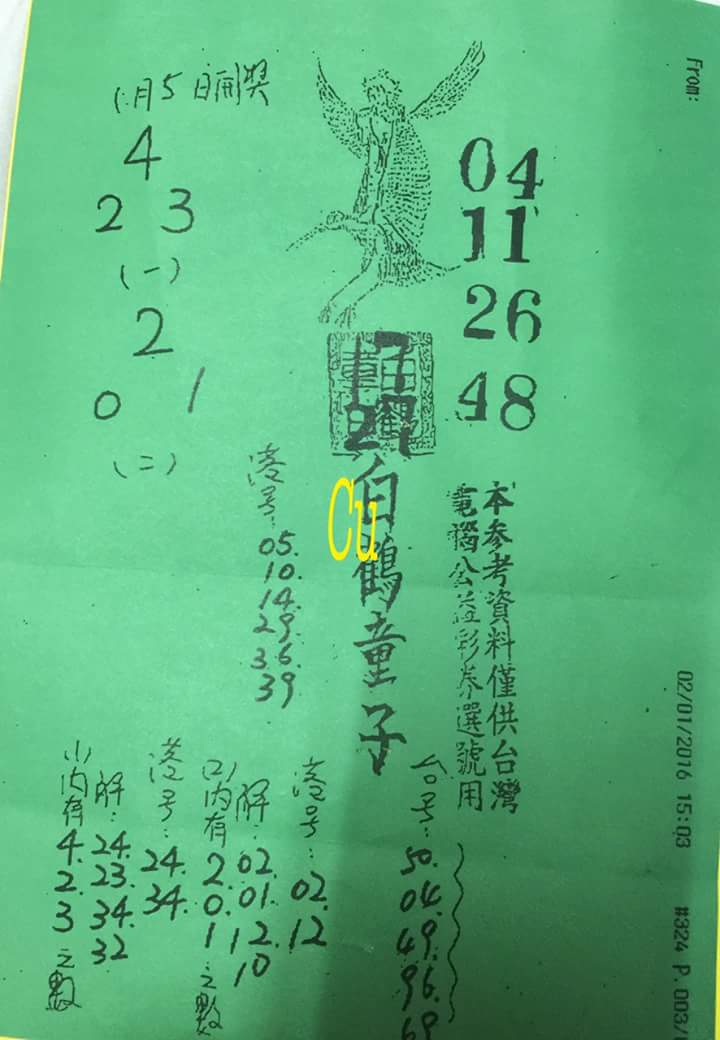 From:
02/01/2016 15:03 #324 P.003/
1月5日開獎
4
2 3
(一)
2
0 1
(二)
04
11
26
48
17
27
白鶴童子
Cu
本參考資料僅供台灣
電腦公益彩券選號用
港号:
05.
10.
14.
29.
36.
39
台号:
50.
04.
49.
96.
69
港号:
02.
12
(2)內有2.0.1之數
解:02.01.12.10
港号:
24.
34.
(1)內有4.2.3之數
解:24.23.34.32